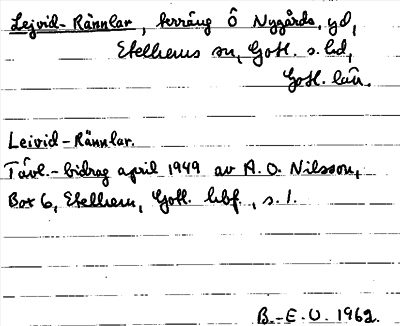 Lejvid-Rännlar, terräng Ö Nygårds, gd,
Etelhems sn, Gotl. s. hd,
Gotl. län.
Leivid-Rännlar.
Tävl.-bidrag april 1949 av A. O. Nilsson,
Box 6, Etelhem, Gotl. hbf., s. 1.
B.-E. U. 1962.